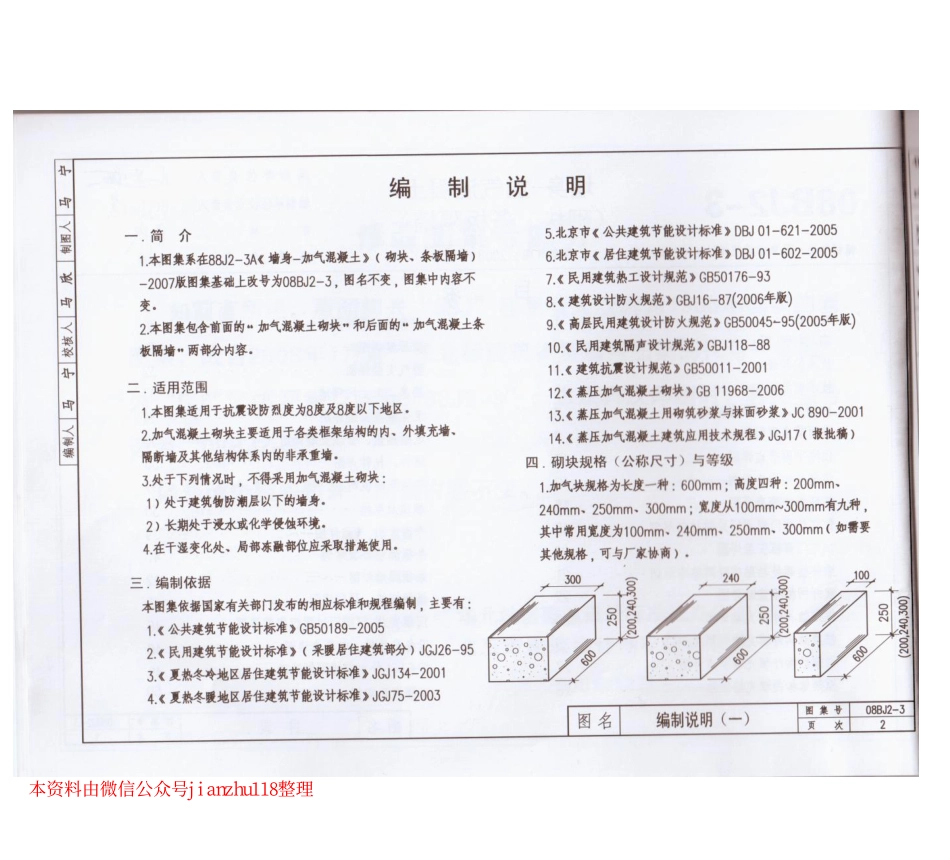 编 制 说 明
一．简 介
1.本图集系在88J2-3A《墙身-加气混凝土》（砌块、条板隔墙）
-2007版图集基础上改号为08BJ2-3，图名不变，图集中内容不
变。
2.本图集包含前面的“加气混凝土砌块”和后面的“加气混凝土条
板隔墙”两部分内容。
二．适用范围
1.本图集适用于抗震设防烈度为8度及8度以下地区。
2.加气混凝土砌块主要适用于各类框架结构的内、外填充墙、
隔断墙及其他结构体系内的非承重墙。
3.处于下列情况时，不得采用加气混凝土砌块：
1）处于建筑物防潮层以下的墙身。
2）长期处于浸水或化学侵蚀环境。
4.在干湿变化处、局部冻融部位应采取措施使用。
三．编制依据
本图集依据国家有关部门发布的相应标准和规程编制，主要有：
1.《公共建筑节能设计标准》GB50189-2005
2.《民用建筑节能设计标准》（采暖居住建筑部分）JGJ26-95
3.《夏热冬冷地区居住建筑节能设计标准》JGJ134-2001
4.《夏热冬暖地区居住建筑节能设计标准》JGJ75-2003
5.北京市《公共建筑节能设计标准》DBJ 01-621-2005
6.北京市《居住建筑节能设计标准》DBJ 01-602-2005
7.《民用建筑热工设计规范》GB50176-93
8.《建筑设计防火规范》GBJ16-87(2006年版)
9.《高层民用建筑设计防火规范》GB50045-95(2005年版)
10.《民用建筑隔声设计规范》GBJ118-88
11.《建筑抗震设计规范》GB50011-2001
12.《蒸压加气混凝土砌块》GB 11968-2006
13.《蒸压加气混凝土用砌筑砂浆与抹面砂浆》JC 890-2001
14.《蒸压加气混凝土建筑应用技术规程》JGJ17（报批稿）
四．砌块规格（公称尺寸）与等级
1.加气块规格为长度一种：600mm；高度四种：200mm、
240mm、250mm、300mm；宽度从100mm~300mm有九种，
其中常用宽度为100mm、240mm、250mm、300mm（如需要
其他规格，可与厂家协商）。
300
250
(200,240,300)
600
240
250
(200,240,300)
600
100
250
(200,240,300)
600
编制人 马 宁 校核人 马 欣 制图人 马 宁
图名
编制说明（一）
图 集 号
08BJ2-3
页 次
2
本资料由微信公众号jianzhu118整理